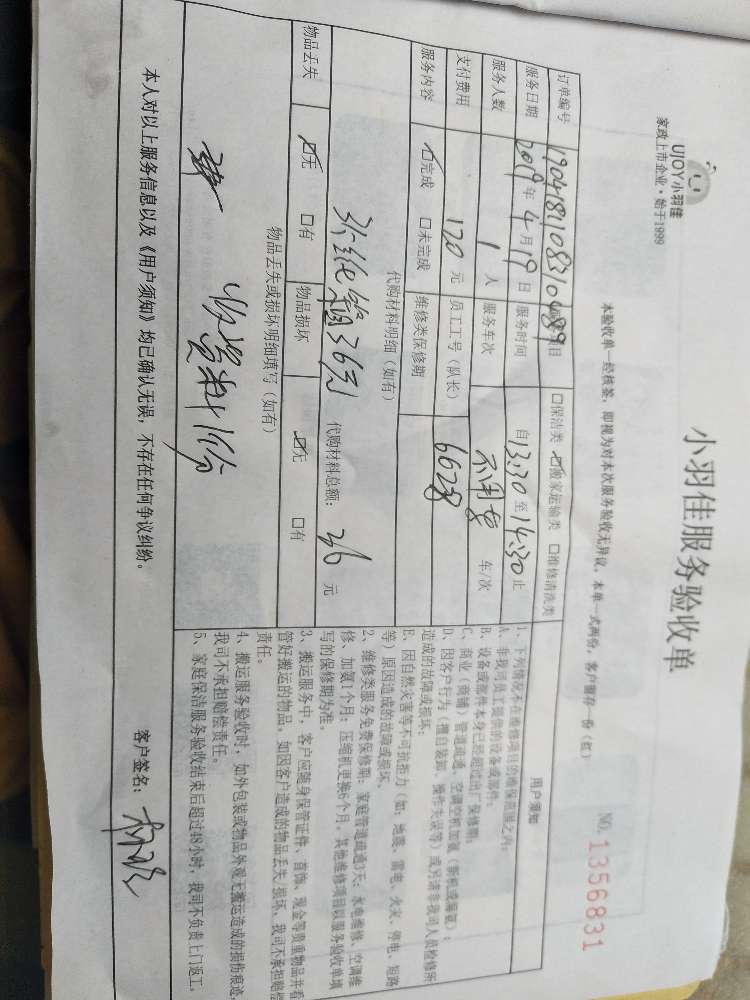 UJOY小羽佳
家政上市企业·始于1999
小羽佳服务验收单
NO. 1356831
本验收单一经核签，即视为对本次服务验收无异议，本单一式两份，客户留存一份（红）
订单编号 190418110831048 项目 □保洁类 ☑搬家运输类 □维修清洗类
服务日期 2019年4月19日 服务时间 自13:30至14:30止
服务人数 1人 服务车次 车/次
支付费用 120元 员工工号（队长） 6628
服务内容 ☑完成 □未完成 维修类保修期
代购材料明细（如有）
3个纸箱36元 代购材料总额： 36 元
物品丢失 ☑无 □有 物品损坏 ☑无 □有
物品丢失或损坏明细填写（如有）
用户须知
1、下列情况不在维修项目的维保范围之内：
A、非我司员工提供的设备或部件；
B、设备或部件本身已经超过出厂保修期；
C、商业（商铺）管道疏通、空调空机加氨（新机或漏氨）；
D、因客户行为（擅自装卸、操作失误等）或另请非我司人员检修所
造成的故障或损坏；
E、因自然灾害等不可抗拒力（如：地震、雷电、火灾、停电、短路
等）原因造成的故障或损坏。
2、维修类服务免费保修期：家庭管道疏通3天；水电维修、空调维
修、加氨1个月；压缩机更换6个月，其他维修项目以服务验收单填
写的保修期为准。
3、搬运服务中，客户应随身保管证件、首饰、现金等贵重物品并看
管好搬运的物品，如因客户造成的物品丢失/损坏，我司不承担赔偿
责任。
4、搬运服务验收时，如外包装或物品外观无搬运造成的损伤痕迹，
我司不承担赔偿责任。
5、家庭保洁服务验收结束后超过48小时，我司不负责上门返工。
本人对以上服务信息以及《用户须知》均已确认无误，不存在任何争议纠纷。 客户签名：